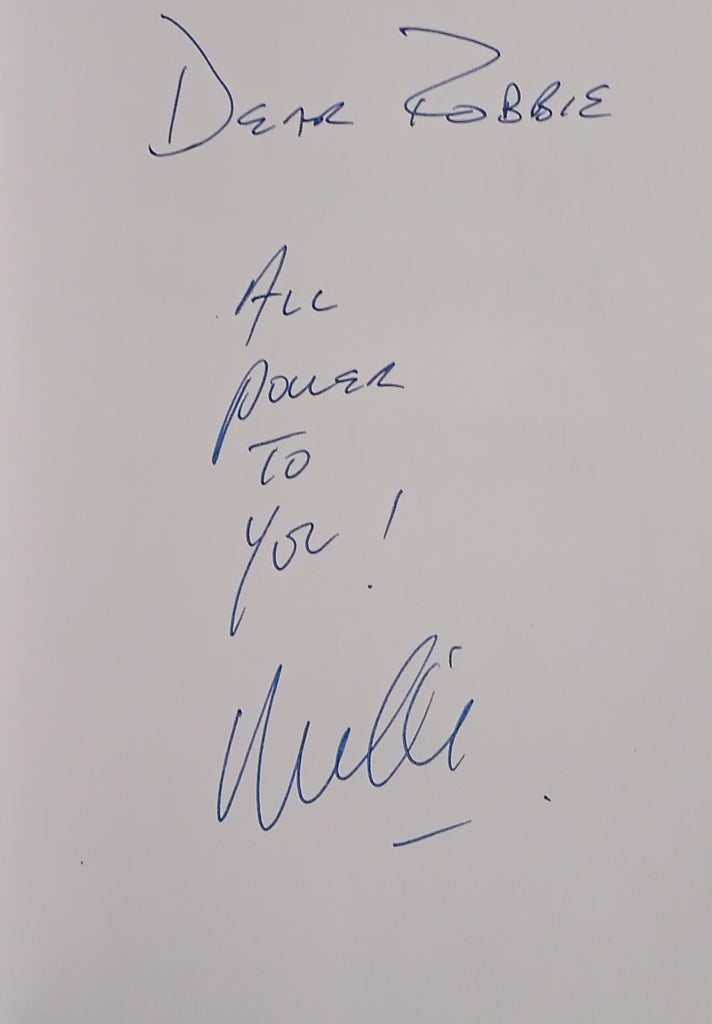 DEAR ROBBIE
ALL
POWER
TO
YOU!